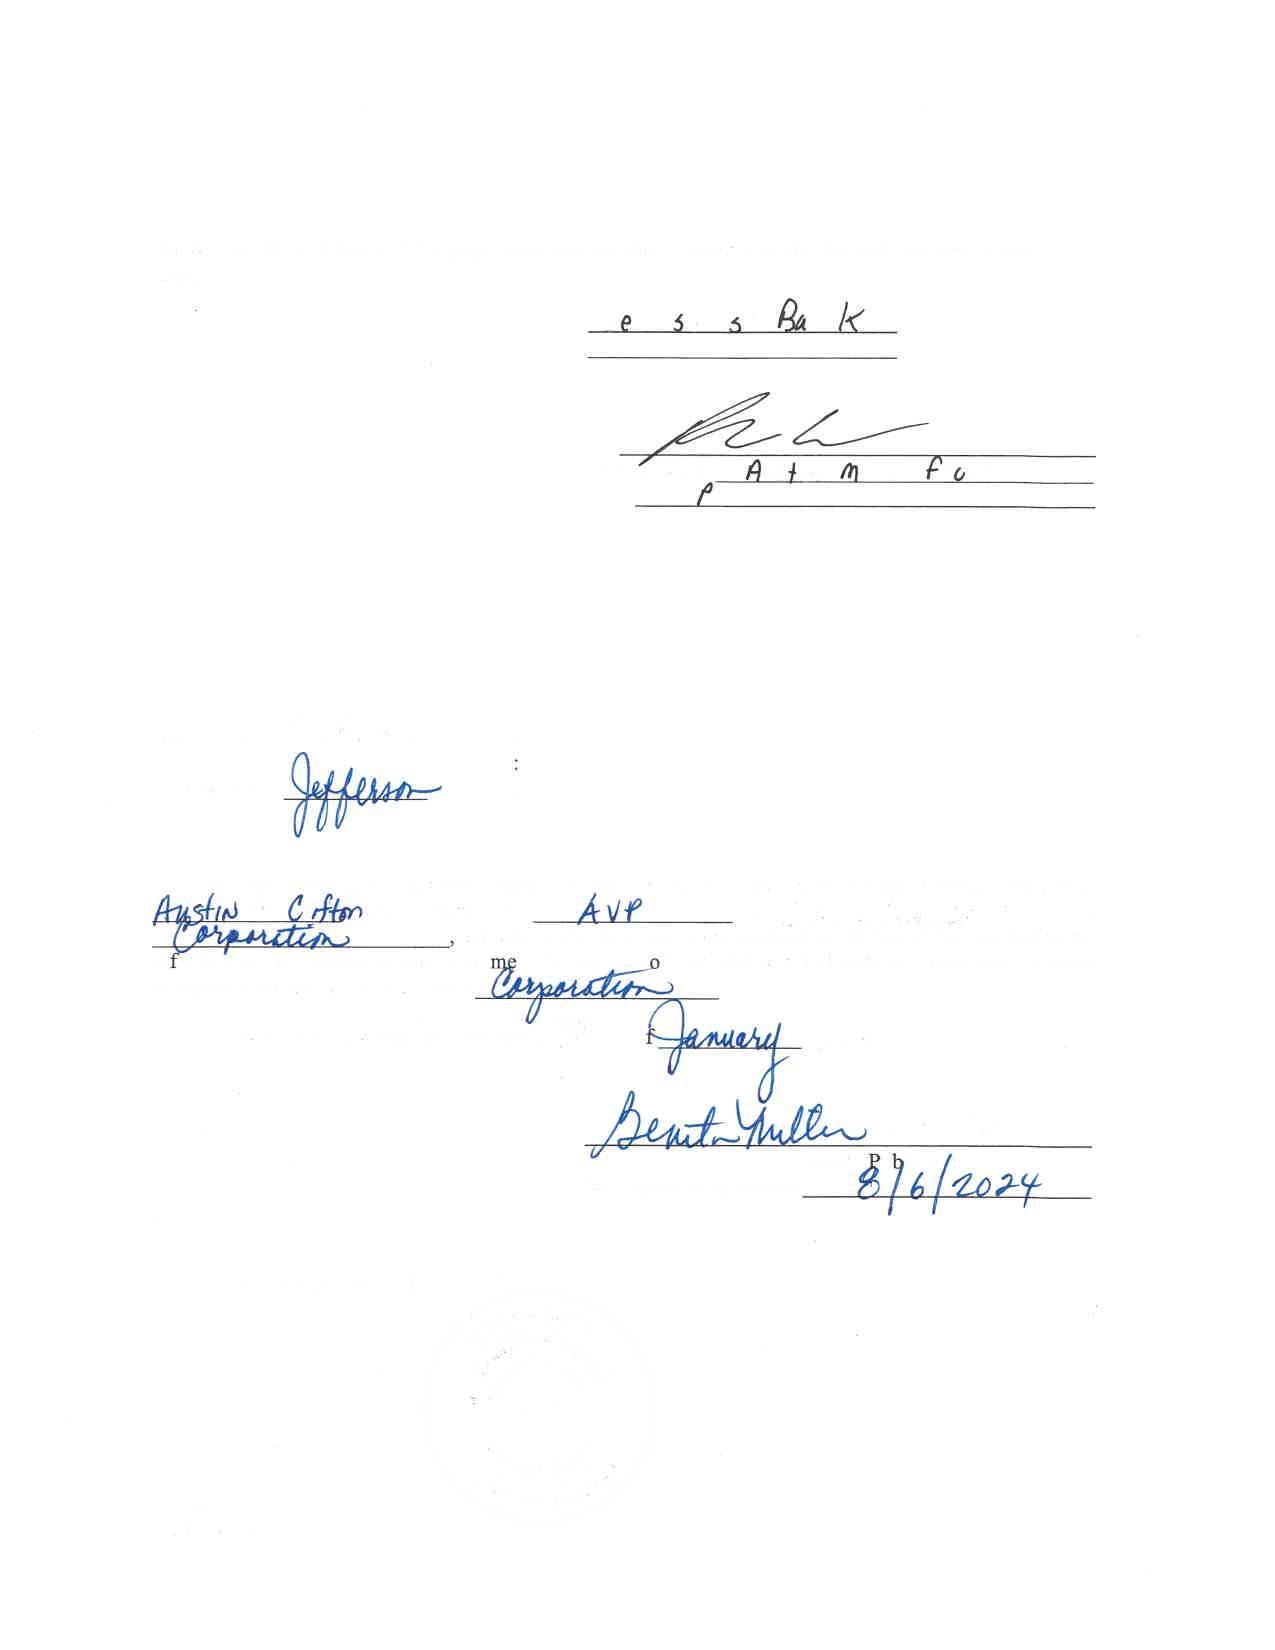 e s s Ba K
A t m f c
P
Jefferson :
Austin C fton AVP
Corporation ,
f me o
Corporation
f January
Benita Miller
P b
8/6/2024